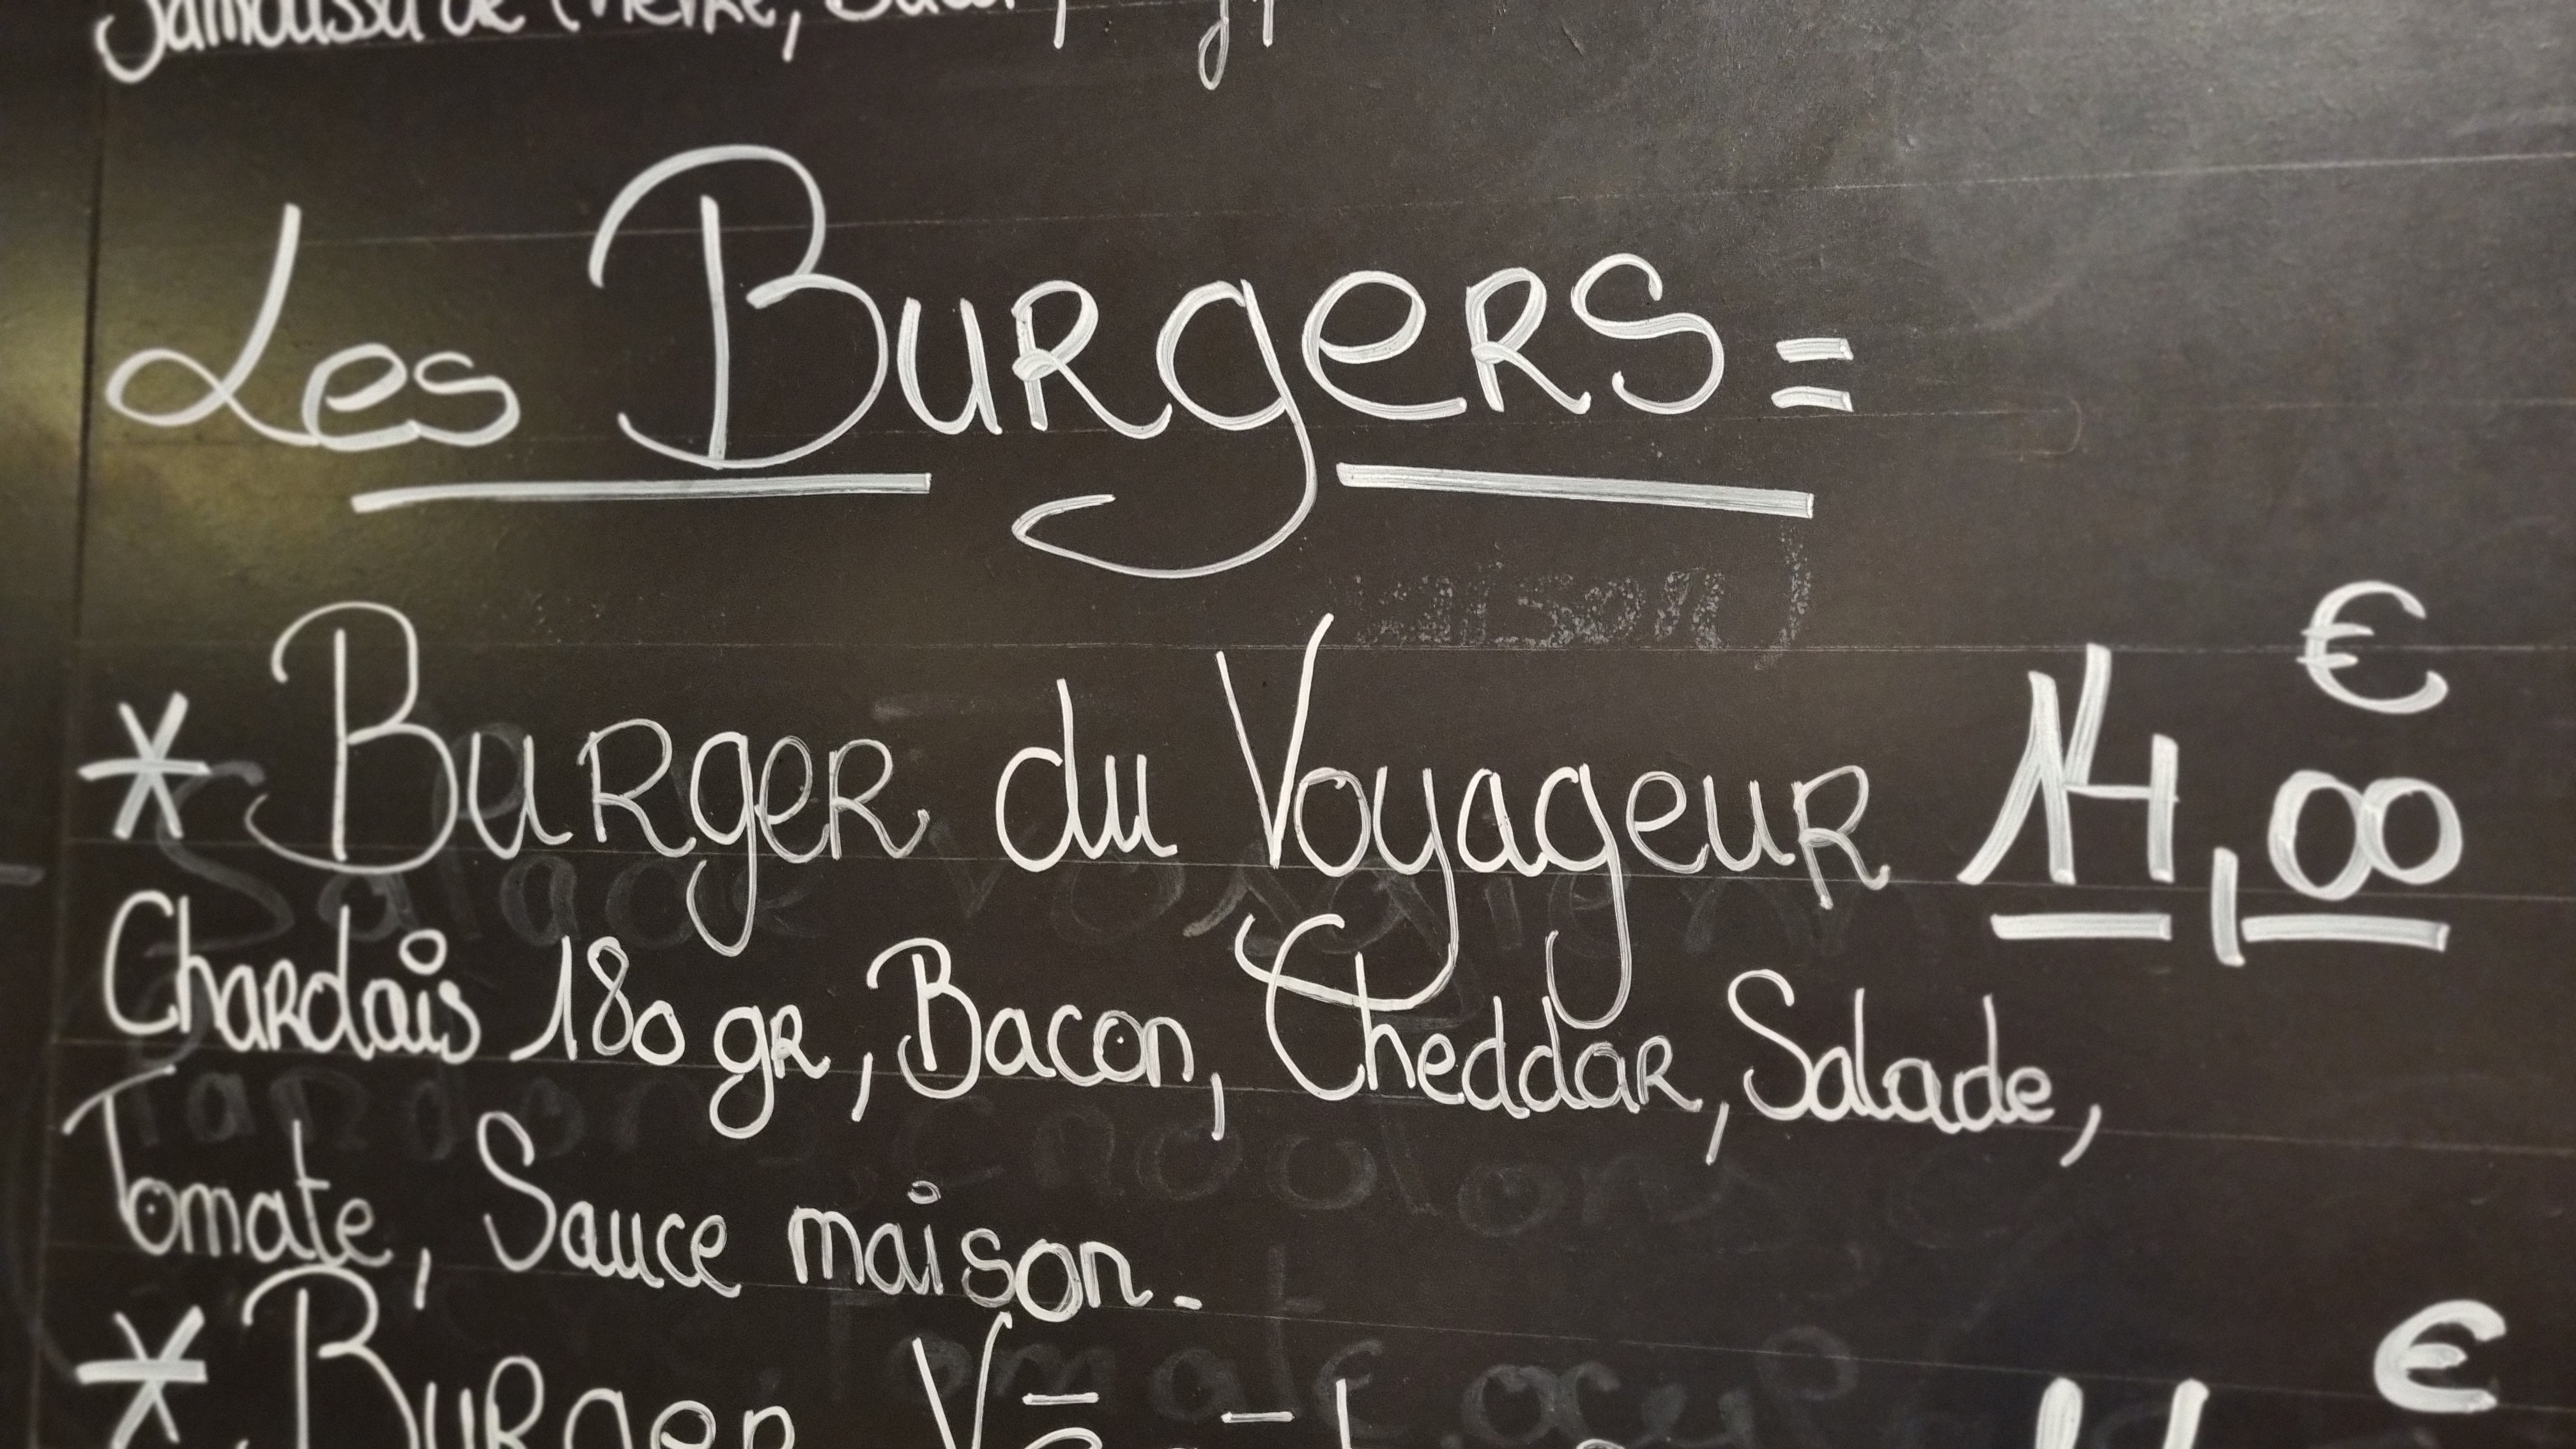 Les Burgers =
* Burger du Voyageur 14,00 €
Chardais 180 gr, Bacon, Cheddar, Salade,
Tomate, Sauce maison.
* Burger